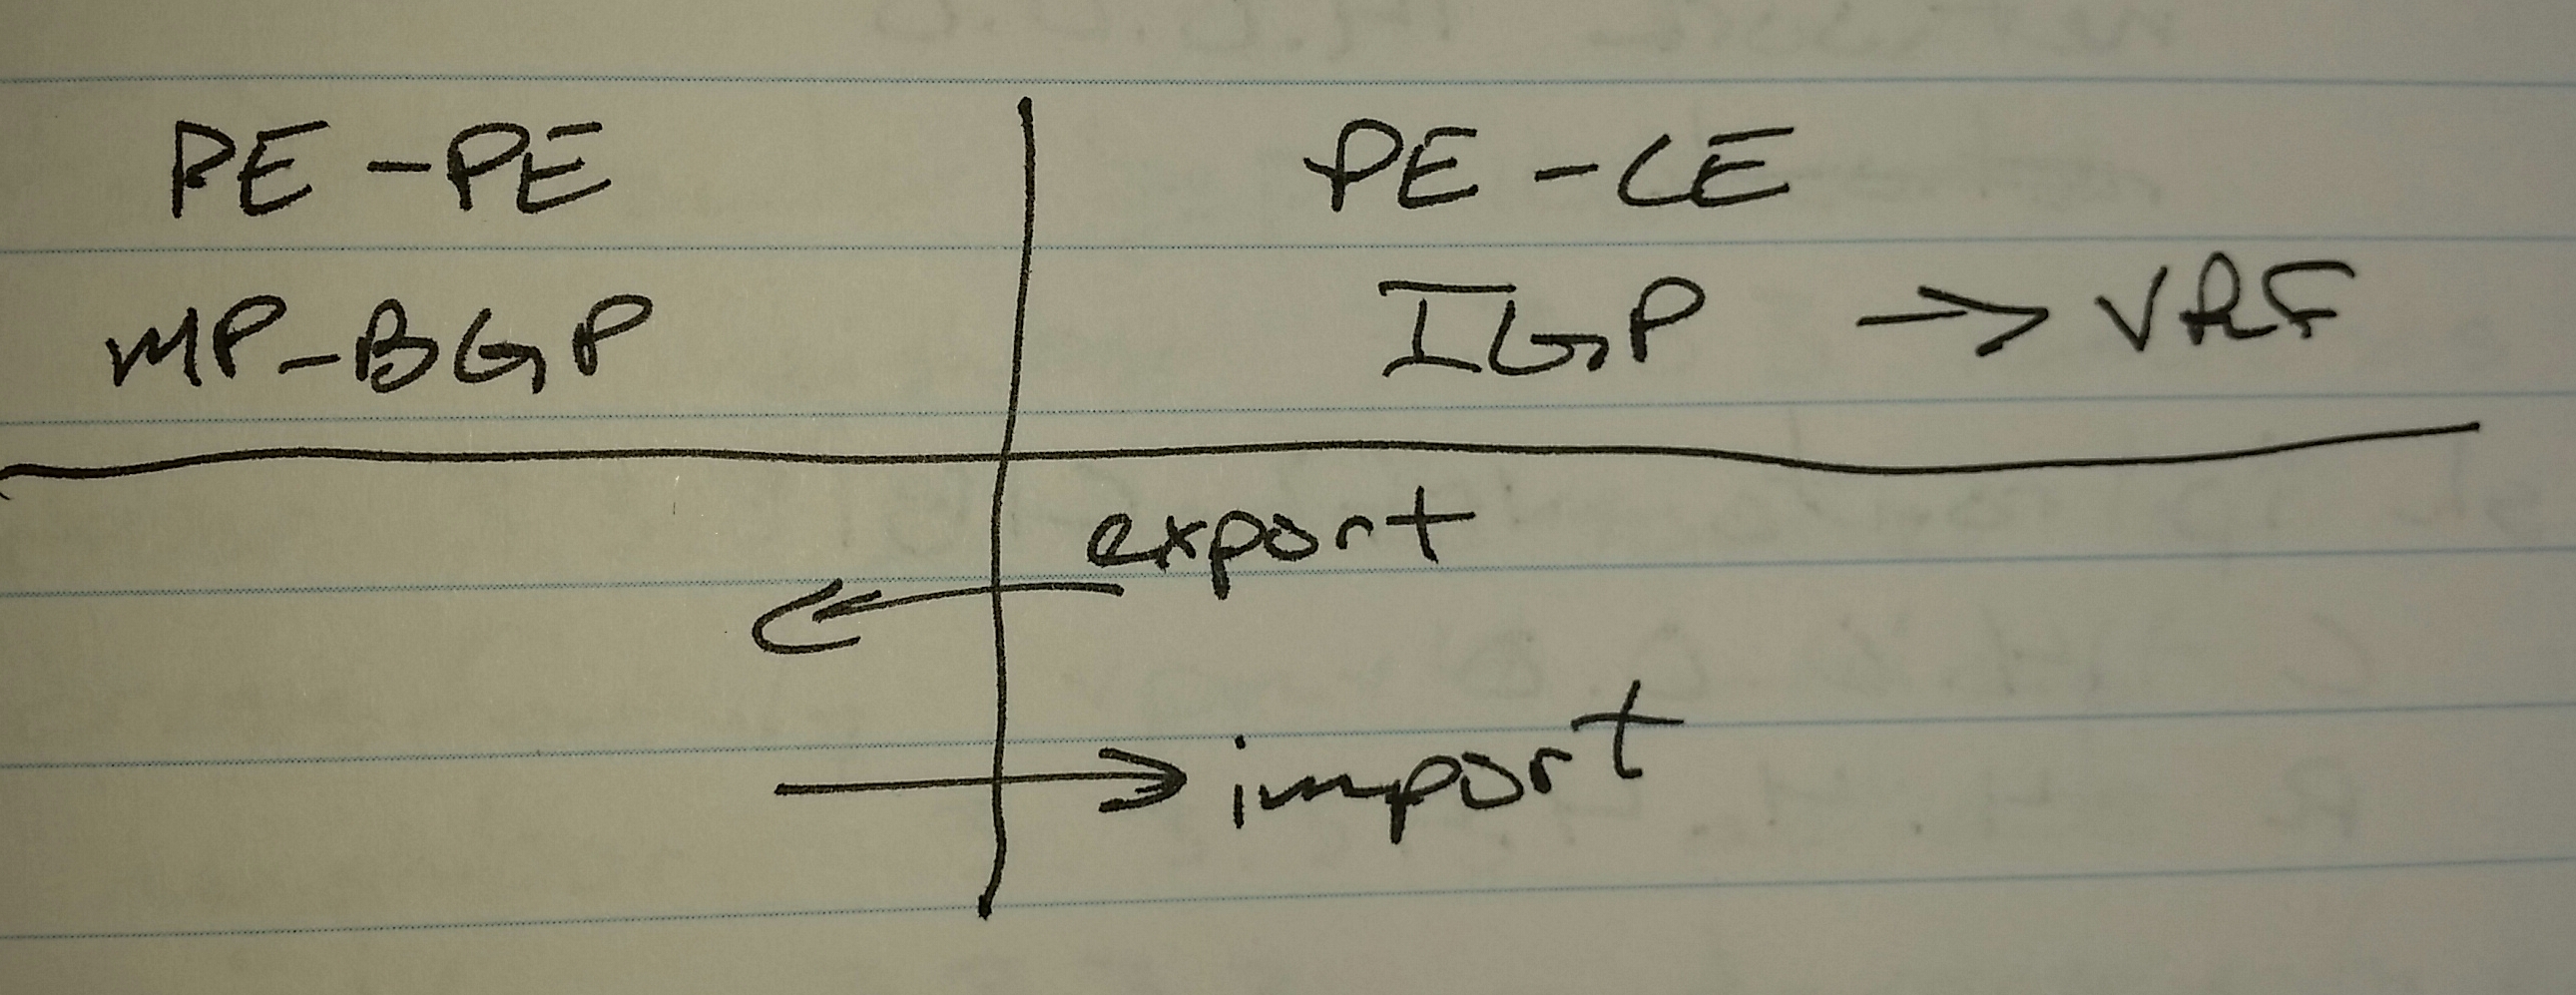 PE - PE
MP-BGP
PE - CE
IGP → VRF
export
import